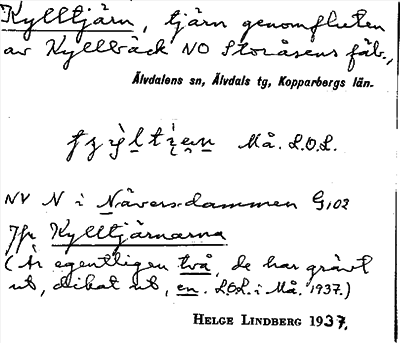 Kylltjärn, tjärn genomfluten
av Kyllbäck NO Storåsens fäb.,
Älvdalens sn, Älvdals tg, Kopparbergs län.
Må. L.O.L.
NV N i Nävers dammen G102
Jfr Kylltjärnarna
(Är egentligen två, de har grävt
ut, dikat ut, en. LOL. i Må. 1937.)
HELGE LINDBERG 1937.